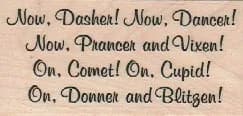 Now, Dasher! Now, Dancer!
Now, Prancer and Vixen!
On, Comet! On, Cupid!
On, Donner and Blitzen!